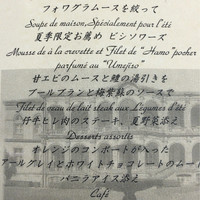 フォワグラムースを絞って
Soupe de maison,Spécialement pour l'été
夏季限定お薦め ビシソワーズ
Mousse de à la crevette et Filet de "Hamo" pocher
parfumé au "Umejiso"
甘エビのムースと鱧の湯引きを
ブールブランと梅紫蘇のソースで
Filet de veau de lait steak aux Légumes d'été
仔牛ヒレ肉のステーキ、夏野菜添え
Desserts assortis
オレンジのコンポートが入った
アールグレイとホワイトチョコレートのムー
バニラアイス添え
Café